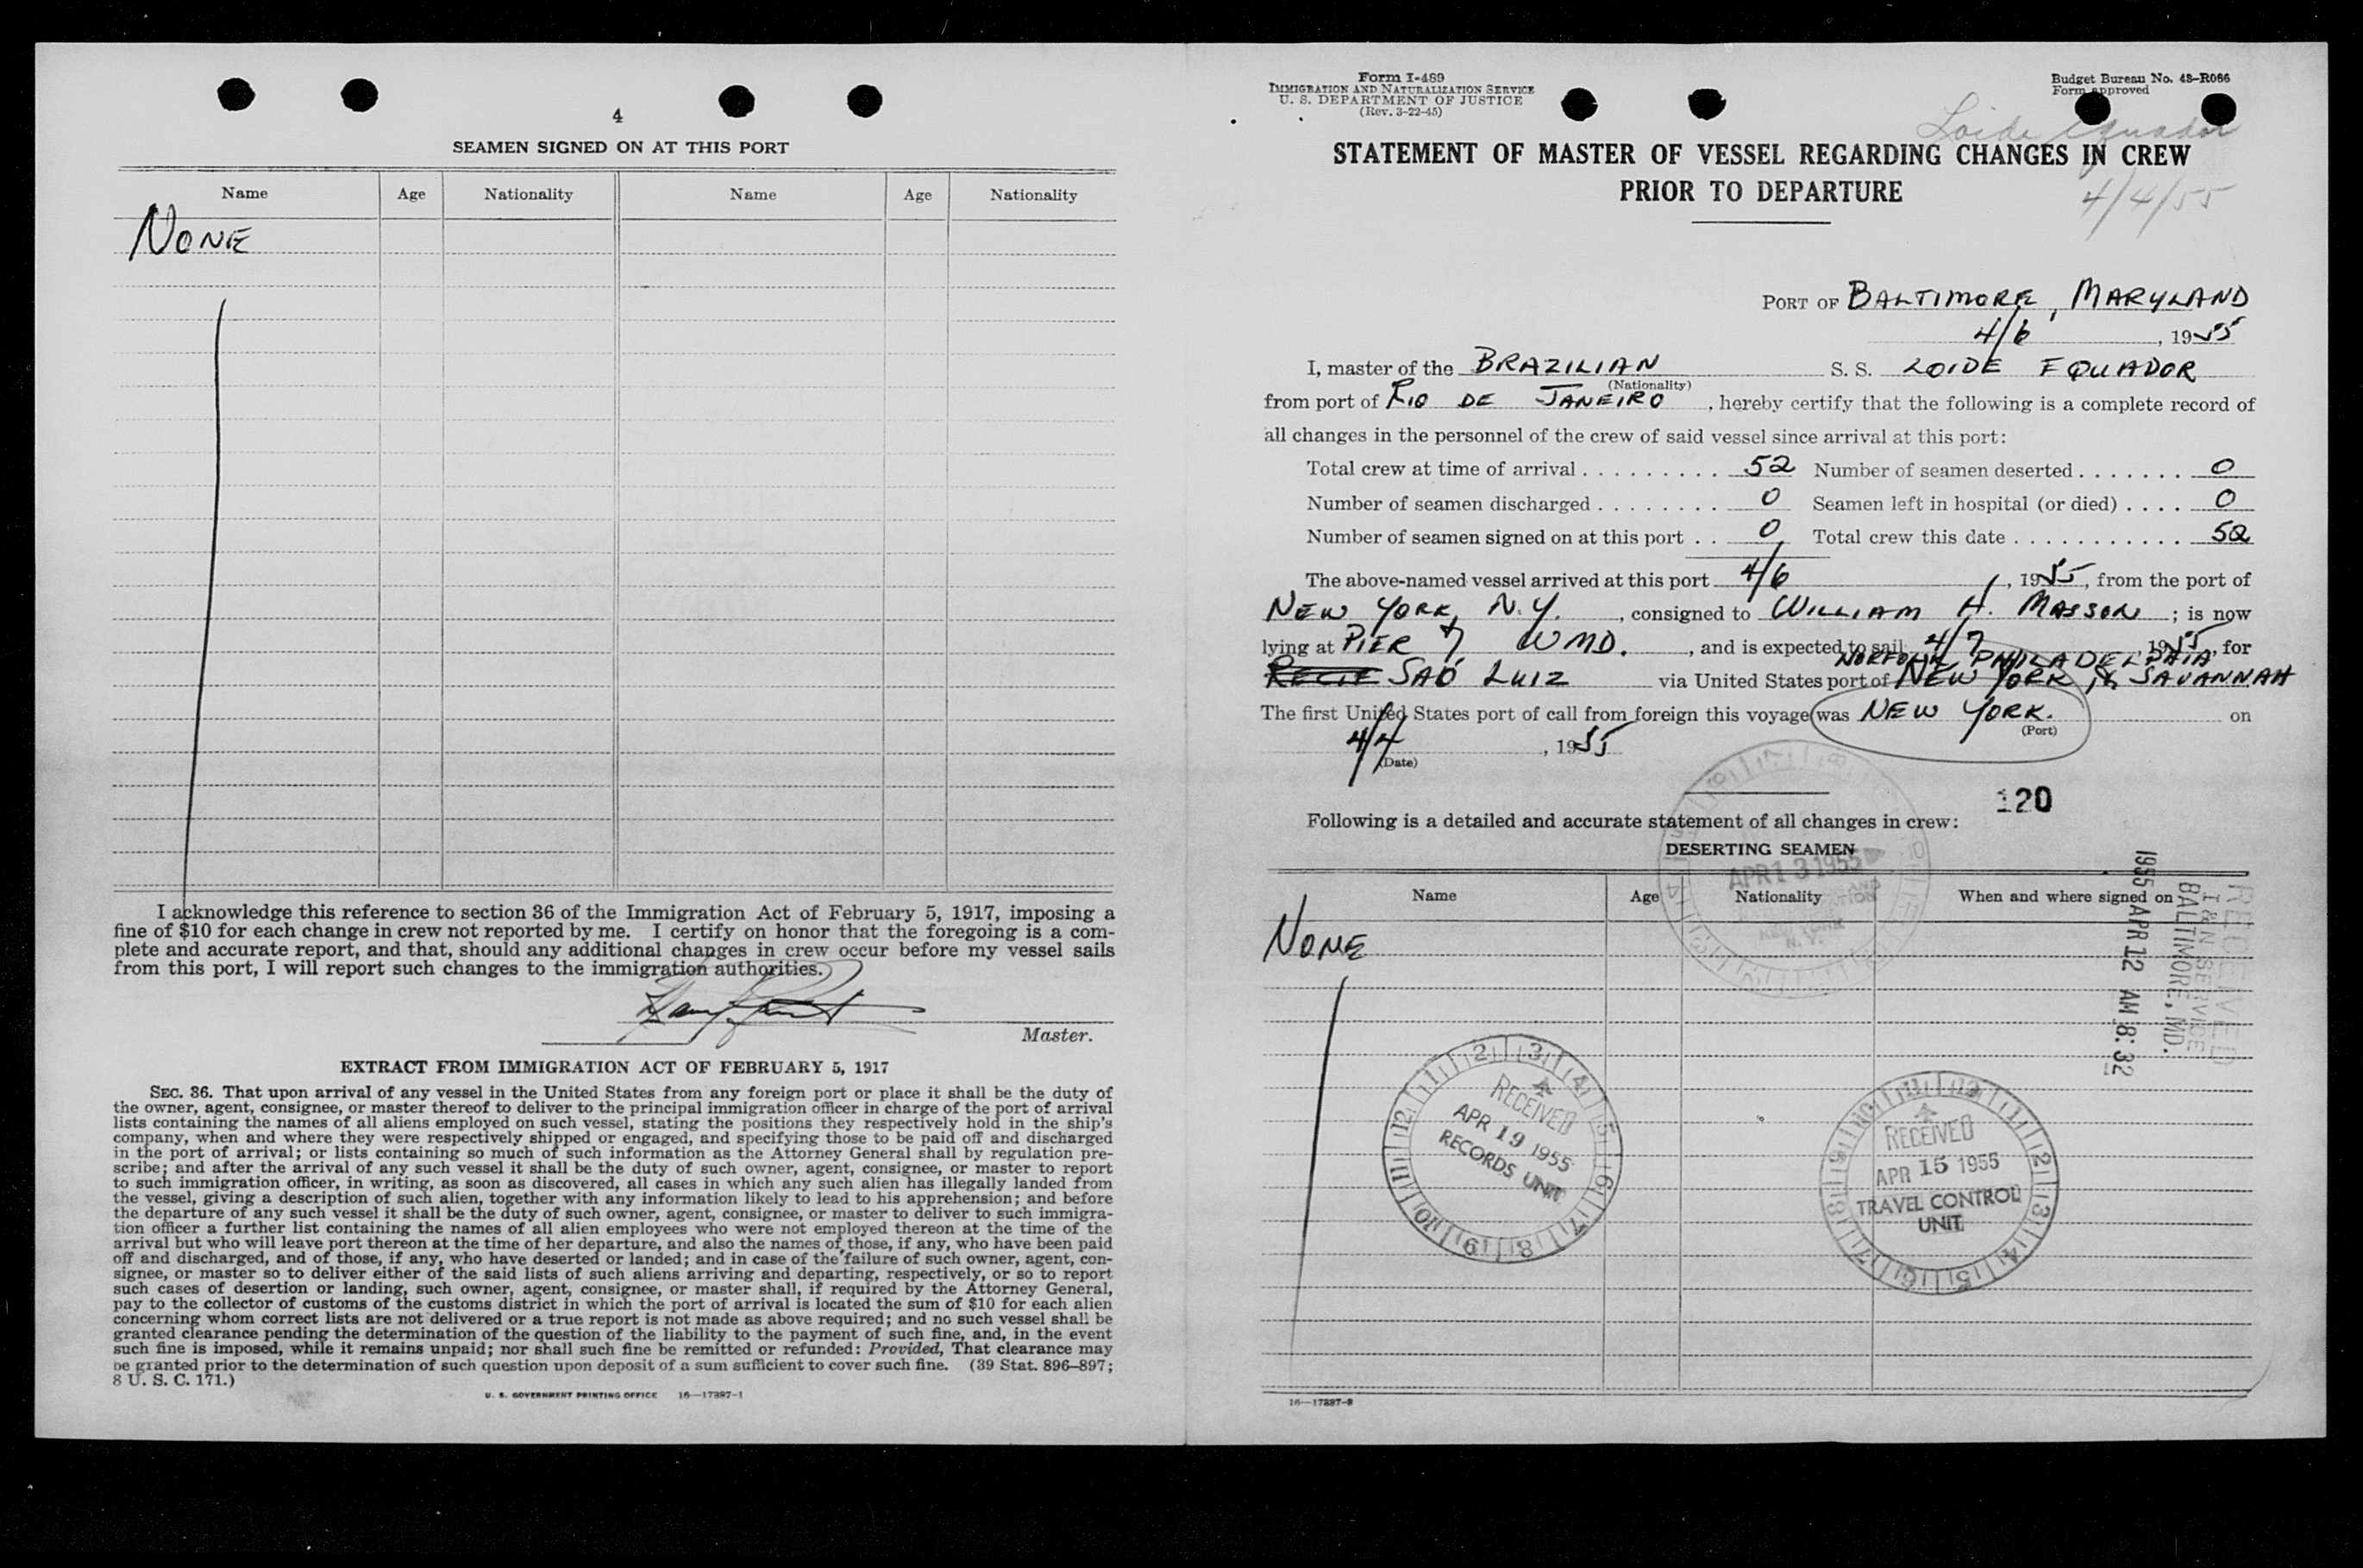 4
SEAMEN SIGNED ON AT THIS PORT
Name Age Nationality Name Age Nationality
NONE
I acknowledge this reference to section 36 of the Immigration Act of February 5, 1917, imposing a
fine of $10 for each change in crew not reported by me. I certify on honor that the foregoing is a com-
plete and accurate report, and that, should any additional changes in crew occur before my vessel sails
from this port, I will report such changes to the immigration authorities.
Master.
EXTRACT FROM IMMIGRATION ACT OF FEBRUARY 5, 1917
SEC. 36. That upon arrival of any vessel in the United States from any foreign port or place it shall be the duty of
the owner, agent, consignee, or master thereof to deliver to the principal immigration officer in charge of the port of arrival
lists containing the names of all aliens employed on such vessel, stating the positions they respectively hold in the ship's
company, when and where they were respectively shipped or engaged, and specifying those to be paid off and discharged
in the port of arrival; or lists containing so much of such information as the Attorney General shall by regulation pre-
scribe; and after the arrival of any such vessel it shall be the duty of such owner, agent, consignee, or master to report
to such immigration officer, in writing, as soon as discovered, all cases in which any such alien has illegally landed from
the vessel, giving a description of such alien, together with any information likely to lead to his apprehension; and before
the departure of any such vessel it shall be the duty of such owner, agent, consignee, or master to deliver to such immigra-
tion officer a further list containing the names of all alien employees who were not employed thereon at the time of the
arrival but who will leave port thereon at the time of her departure, and also the names of those, if any, who have been paid
off and discharged, and of those, if any, who have deserted or landed; and in case of the failure of such owner, agent, con-
signee, or master so to deliver either of the said lists of such aliens arriving and departing, respectively, or so to report
such cases of desertion or landing, such owner, agent, consignee, or master shall, if required by the Attorney General,
pay to the collector of customs of the customs district in which the port of arrival is located the sum of $10 for each alien
concerning whom correct lists are not delivered or a true report is not made as above required; and no such vessel shall be
granted clearance pending the determination of the question of the liability to the payment of such fine, and, in the event
such fine is imposed, while it remains unpaid; nor shall such fine be remitted or refunded: Provided, That clearance may
be granted prior to the determination of such question upon deposit of a sum sufficient to cover such fine. (39 Stat. 896–897;
8 U. S. C. 171.)
U. S. GOVERNMENT PRINTING OFFICE 16—17387-1
Form I-489
IMMIGRATION AND NATURALIZATION SERVICE
U. S. DEPARTMENT OF JUSTICE
(Rev. 3-22-45)
Budget Bureau No. 43-R066
Form approved
Loide Equador
STATEMENT OF MASTER OF VESSEL REGARDING CHANGES IN CREW
PRIOR TO DEPARTURE
4/4/55
PORT OF BALTIMORE, MARYLAND
4/6, 1955
I, master of the BRAZILIAN S. S. LOIDE EQUADOR
(Nationality)
from port of RIO DE JANEIRO, hereby certify that the following is a complete record of
all changes in the personnel of the crew of said vessel since arrival at this port:
Total crew at time of arrival . . . . . . . . . 52 Number of seamen deserted . . . . . . . 0
Number of seamen discharged . . . . . . . . 0 Seamen left in hospital (or died) . . . . 0
Number of seamen signed on at this port . . 0 Total crew this date . . . . . . . . . . . 52
The above-named vessel arrived at this port 4/6, 1955, from the port of
NEW YORK, N.Y., consigned to WILLIAM H. MASSON; is now
lying at PIER 7 WMD., and is expected to sail 4/7, 1955, for
NORFOLK PHILADELPHIA
SAO LUIZ via United States port of NEW YORK & SAVANNAH
The first United States port of call from foreign this voyage was NEW YORK. on
(Port)
4/4, 1955
(Date)
120
Following is a detailed and accurate statement of all changes in crew:
DESERTING SEAMEN
APR 13 1955
NEW YORK
N. Y.
Name Age Nationality When and where signed on
NONE
RECEIVED
I & N SERVICE
BALTIMORE, MD.
1955 APR 12 AM 8:32
RECEIVED
APR 19 1955
RECORDS UNIT
RECEIVED
APR 15 1955
TRAVEL CONTROL
UNIT
16—17387-2